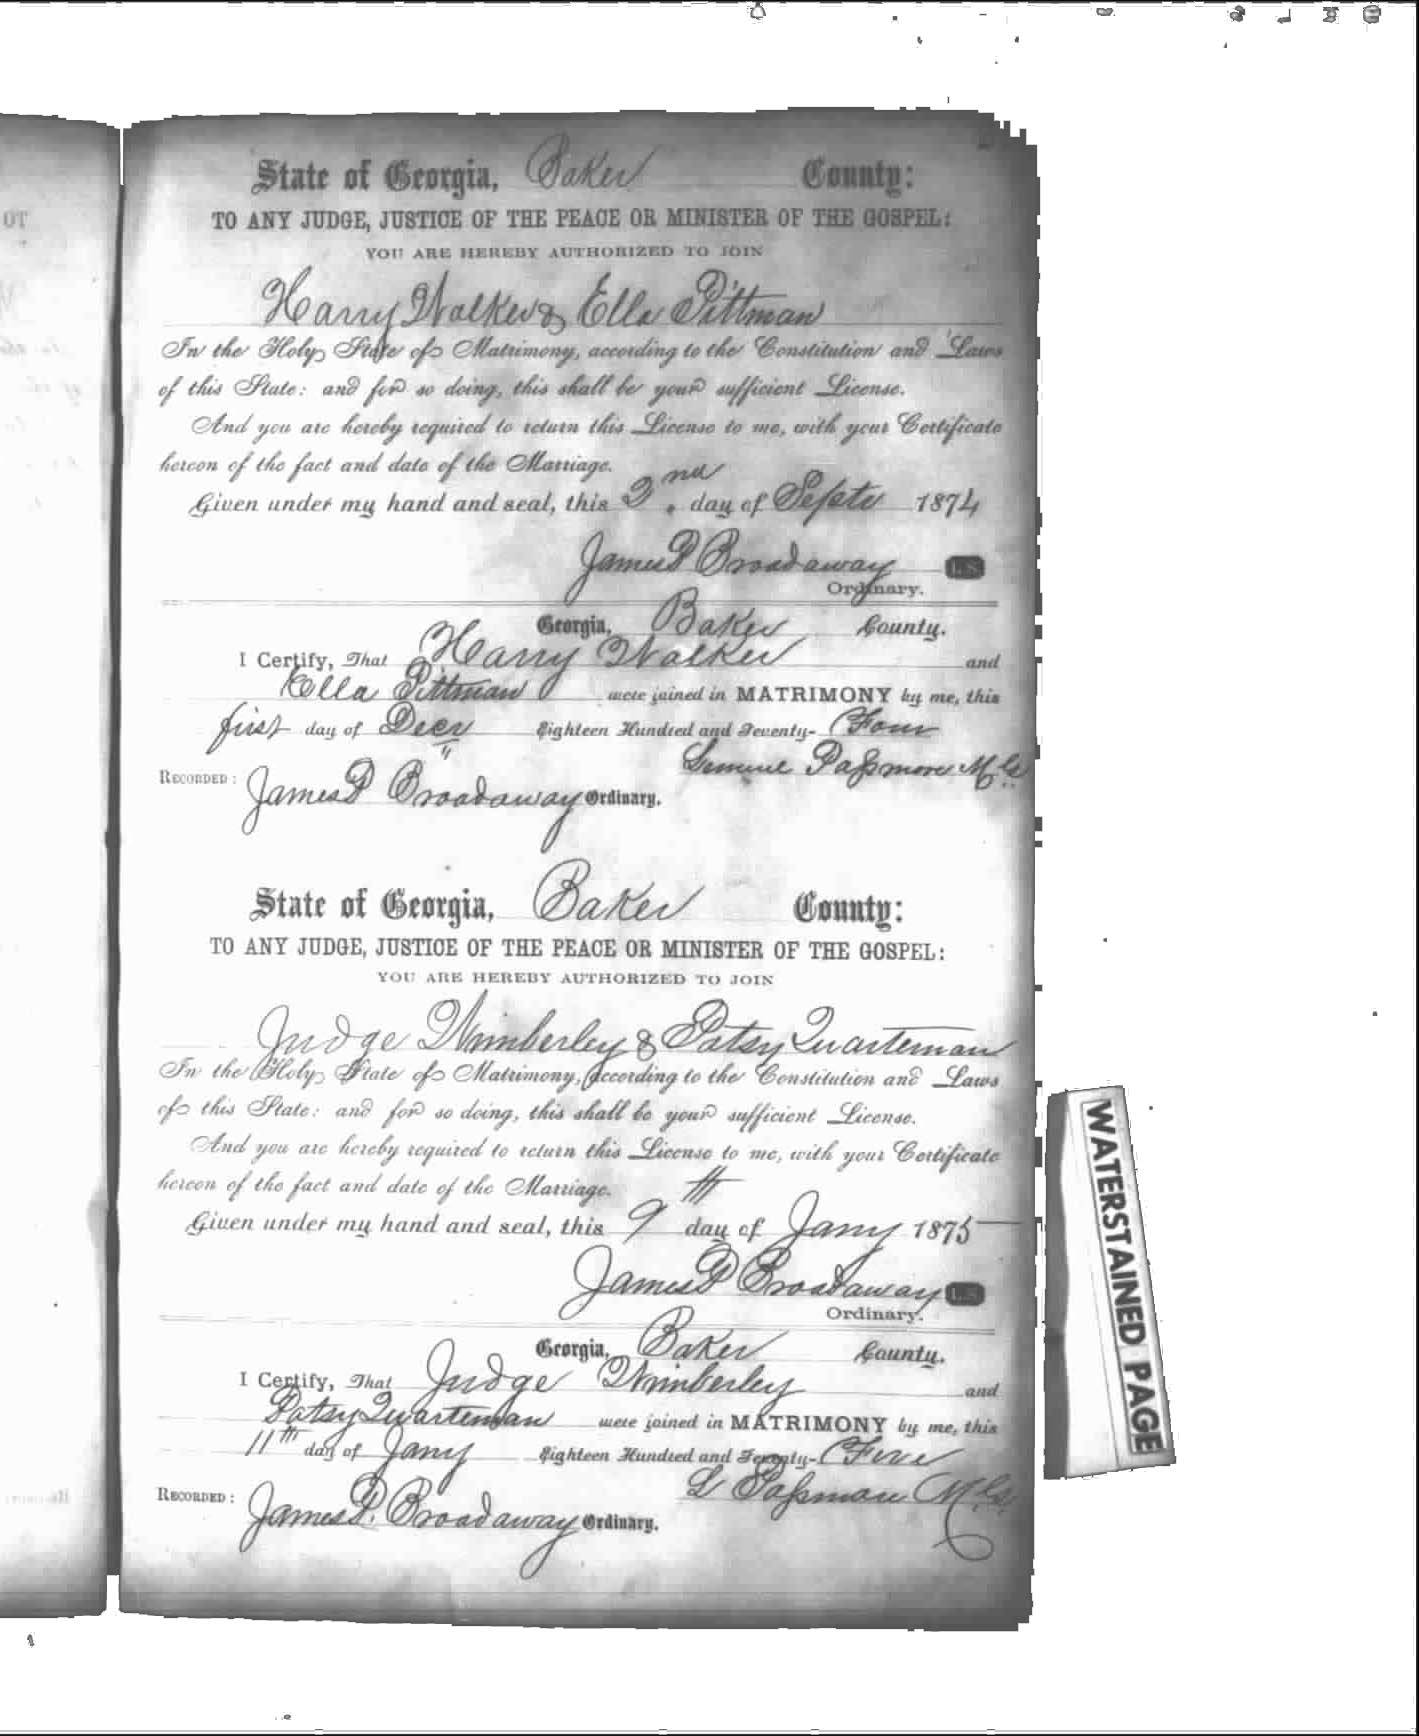 State of Georgia, Baker County:
TO ANY JUDGE, JUSTICE OF THE PEACE OR MINISTER OF THE GOSPEL:
YOU ARE HEREBY AUTHORIZED TO JOIN
Harry Walker & Ella Pittman
In the Holy State of Matrimony, according to the Constitution and Laws
of this State: and for so doing, this shall be your sufficient License.
And you are hereby required to return this License to me, with your Certificate
hereon of the fact and date of the Marriage.
Given under my hand and seal, this 2nd day of Septr 1874
James P Broadaway L.S.
Ordinary.
Georgia, Baker County.
I Certify, That Harry Walker and
Ella Pittman were joined in MATRIMONY by me, this
first day of Decr Eighteen Hundred and Seventy-Four
Lemuel Paſsmore M.G.
RECORDED: James P Broadaway Ordinary.
State of Georgia, Baker County:
TO ANY JUDGE, JUSTICE OF THE PEACE OR MINISTER OF THE GOSPEL:
YOU ARE HEREBY AUTHORIZED TO JOIN
Judge Wimberley & Patsy Quarteman
In the Holy State of Matrimony, according to the Constitution and Laws
of this State: and for so doing, this shall be your sufficient License.
And you are hereby required to return this License to me, with your Certificate
hereon of the fact and date of the Marriage.
Given under my hand and seal, this 9th day of Jany 1875
James P Broadaway L.S.
Ordinary.
Georgia, Baker County.
I Certify, That Judge Wimberley and
Patsy Quarteman were joined in MATRIMONY by me, this
11th day of Jany Eighteen Hundred and Seventy-Five
L Paſsmore M.G.
RECORDED: James P. Broadaway Ordinary.
WATERSTAINED PAGE